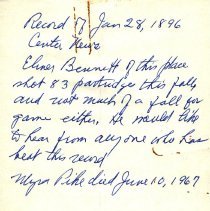 Record of Jan 28, 1896
Center News
Elmer Bennett of this place
shot 83 partridge this fall
and not much of a fall for
game either. He would like
to hear from anyone who has
beat this record
Myra Pike died June 10, 1967